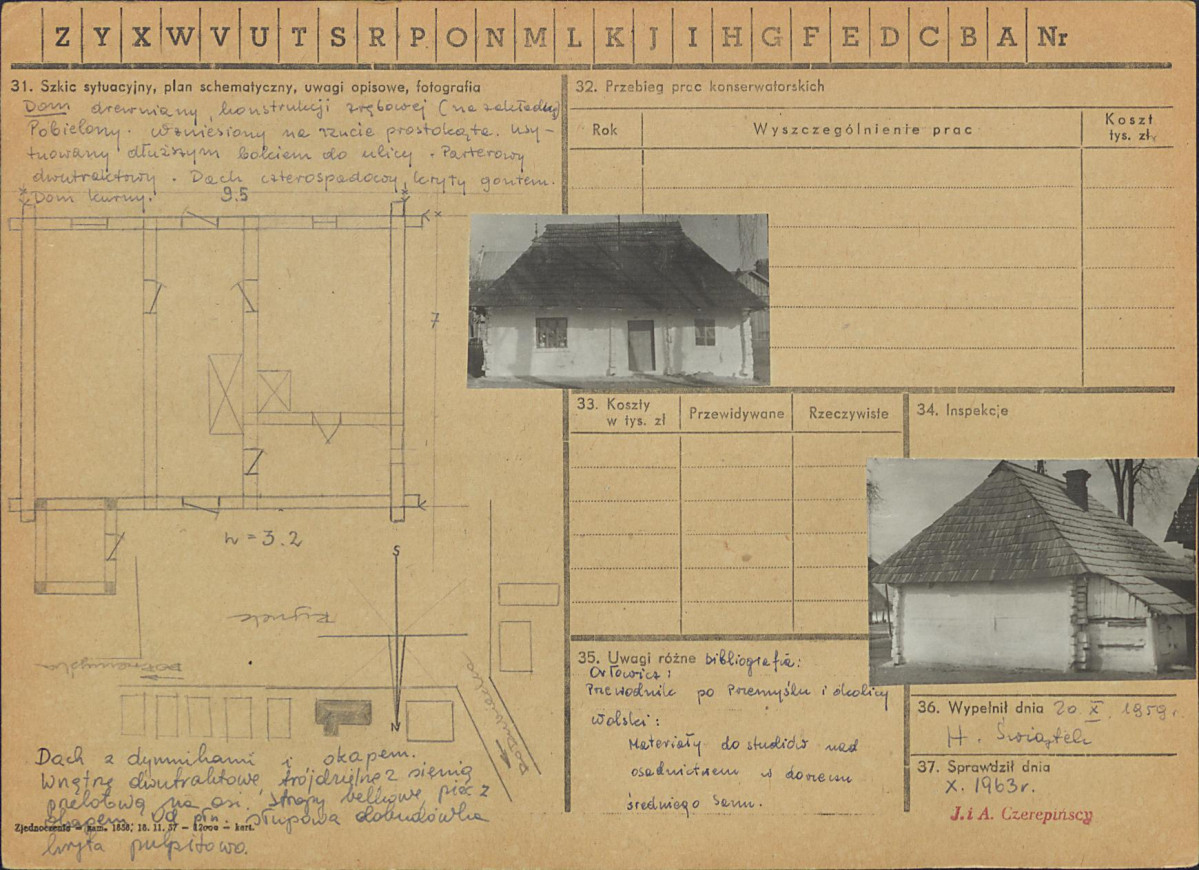 Z Y X W V U T S R P O N M L K J I H G F E D C B A Nr
31. Szkic sytuacyjny, plan schematyczny, uwagi opisowe, fotografia
Dom drewniany, konstrukcji zrębowej (na zakładkę)
Pobielony. Wzniesiony na rzucie prostokąta. Usy-
tuowany dłuższym bokiem do ulicy. Parterowy
dwutraktowy. Dach czterospadowy, kryty gontem.
Dom kurny.
9.5
7
h = 3.2
S
Rynek
N
Dach z dymnikami i okapem.
Wnętrze dwutraktowe, trójdzielne z sienią
przelotową na osi. Stropy belkowe, piec z
okapem. Od płn. słupowa dobudówka
kryta pulpitowo.
Zjednoczenie – zam. 1858, 18. 11. 57 – 12000 – kart.
32. Przebieg prac konserwatorskich
Rok
Wyszczególnienie prac
Koszt
tys. zł.
33. Koszty
w tys. zł
Przewidywane
Rzeczywiste
34. Inspekcje
35. Uwagi różne bibliografia:
Orłowicz:
Przewodnik po Przemyślu i okolicy
Wolski:
Materiały do studiów nad
osadnictwem w dorzeczu
średniego Sanu.
36. Wypełnił dnia 20. X. 1959 r.
H. Świątek
37. Sprawdził dnia
X. 1963 r.
J. i A. Czerepińscy